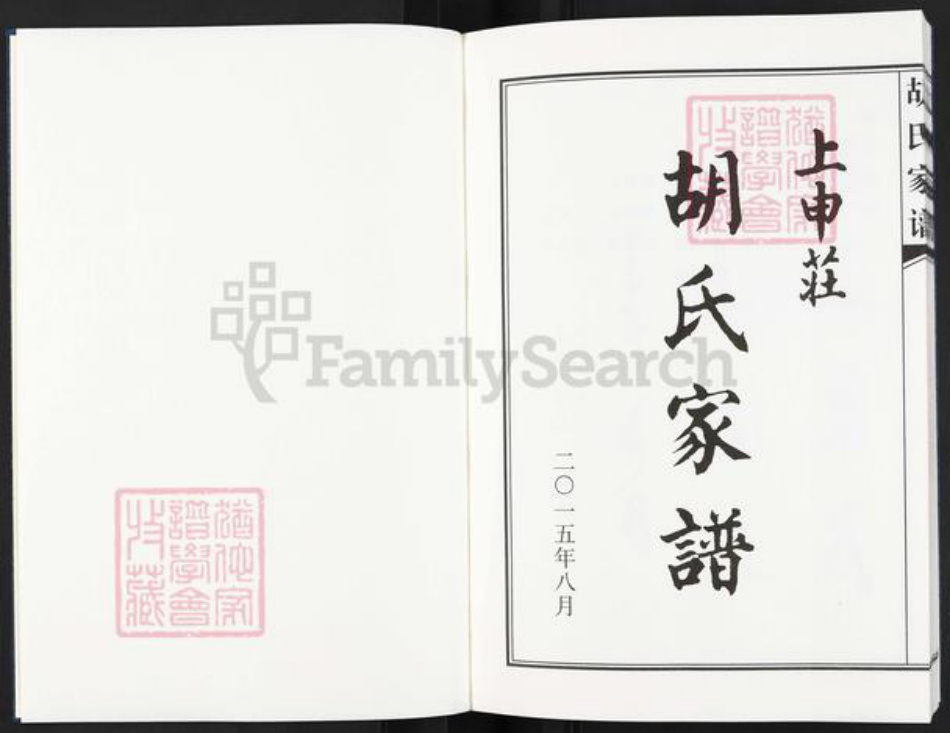 上申莊
胡氏家譜
二〇一五年八月
胡氏家谱
猶他家
譜學會
收藏
猶他家
譜學會
收藏
FamilySearch